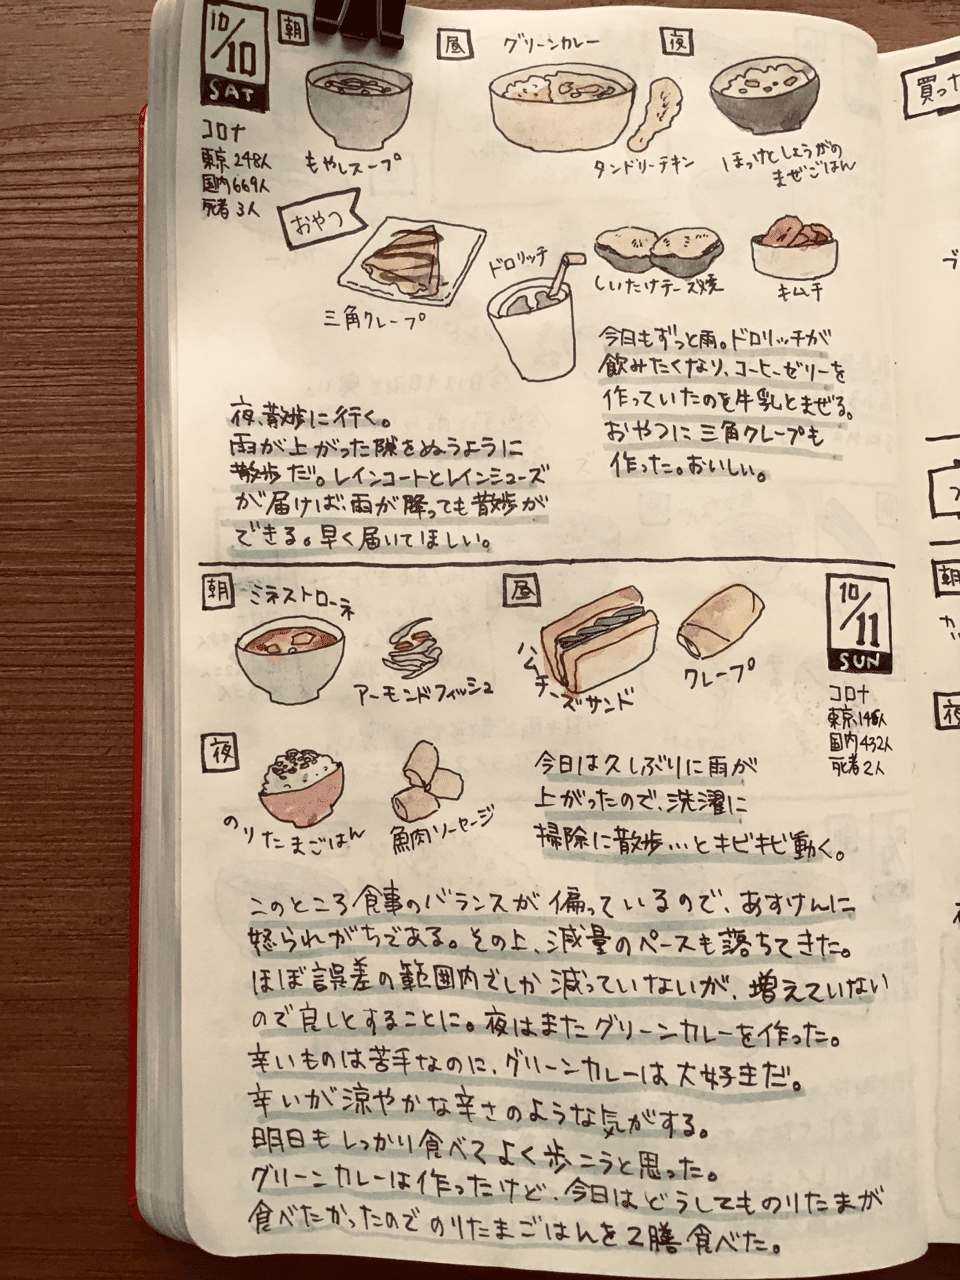 10/10
SAT
コロナ
東京248人
国内669人
死者3人
朝
もやしスープ
昼
グリーンカレー
タンドリーチキン
夜
ほっけとしょうがの
まぜごはん
おやつ
三角クレープ
ドロリッチ
しいたけチーズ焼
キムチ
今日もずっと雨。ドロリッチが
飲みたくなり、コーヒーゼリーを
作っていたのを牛乳とまぜる。
おやつに三角クレープも
作った。おいしい。
夜、散歩に行く。
雨が上がった隙をぬうように
散歩だ。レインコートとレインシューズ
が届けば、雨が降っても散歩が
できる。早く届いてほしい。
朝
ミネストローネ
アーモンドフィッシュ
昼
ハムチーズサンド
クレープ
10/11
SUN
コロナ
東京146人
国内432人
死者2人
夜
のりたまごはん
魚肉ソーセージ
今日は久しぶりに雨が
上がったので、洗濯に
掃除に散歩…とキビキビ動く。
このところ食事のバランスが偏っているので、あすけんに
怒られがちである。その上、減量のペースも落ちてきた。
ほぼ誤差の範囲内でしか減っていないが、増えていない
ので良しとすることに。夜はまたグリーンカレーを作った。
辛いものは苦手なのに、グリーンカレーは大好きだ。
辛いが涼やかな辛さのような気がする。
明日もしっかり食べてよく歩こうと思った。
グリーンカレーは作ったけど、今日はどうしてものりたまが
食べたかったのでのりたまごはんを2膳食べた。
買った
朝
夜